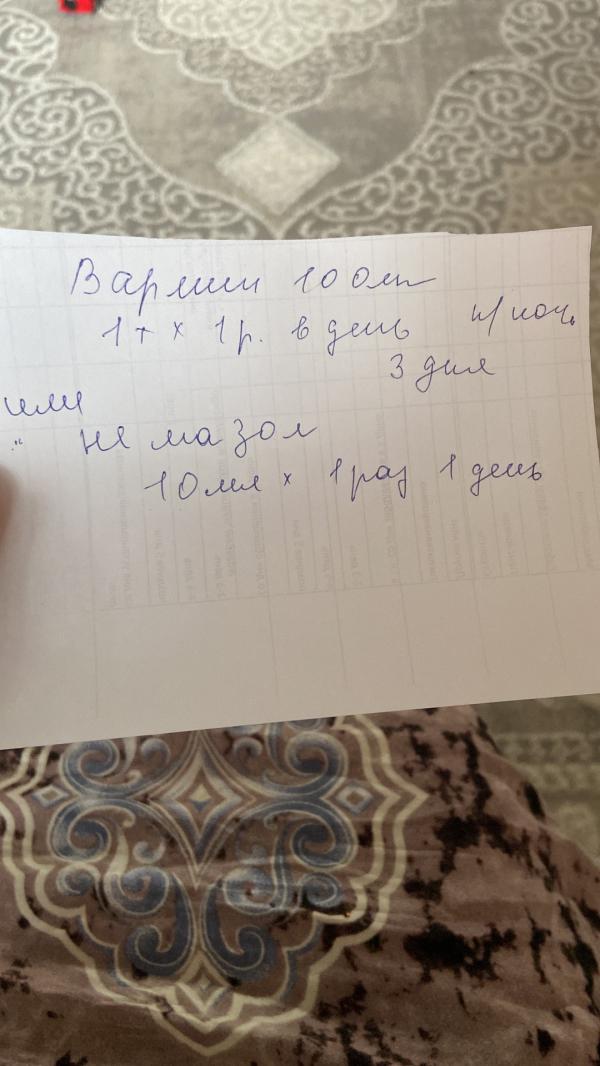 Вармин 100мг
1т × 1р. в день н/ноч.
3 дня
или
" немазол
10мл × 1раз 1 день